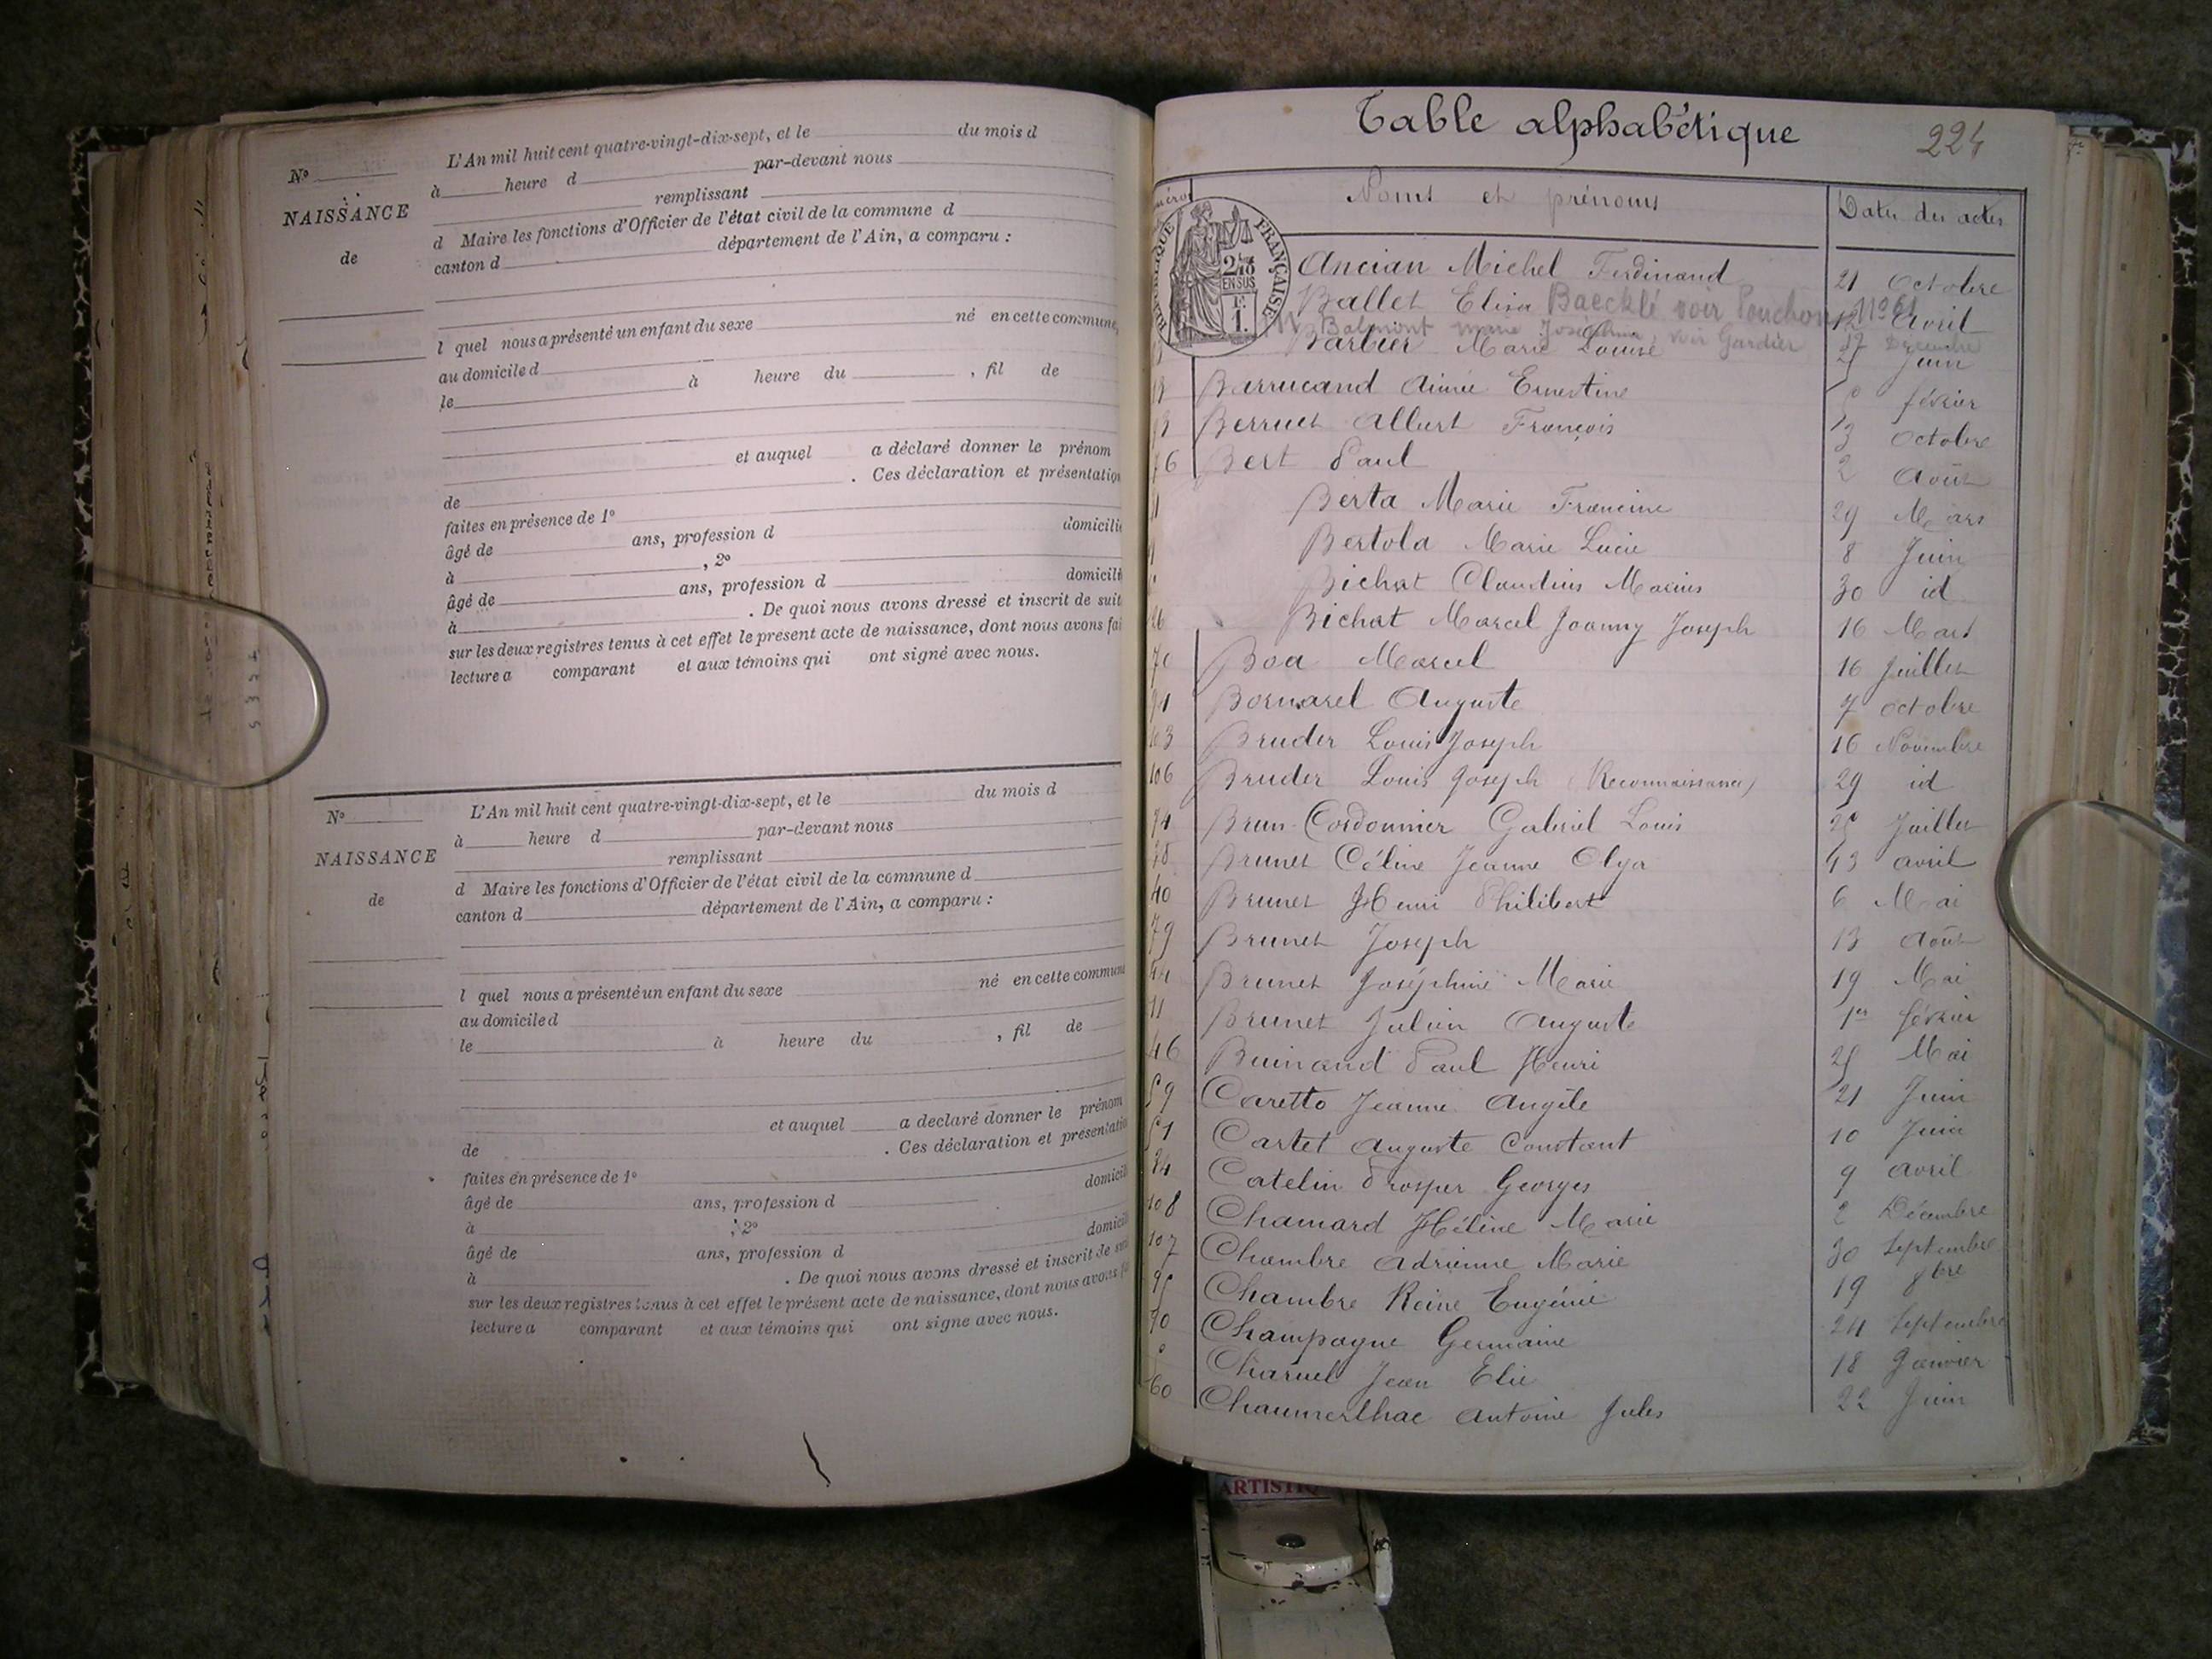 L'An mil huit cent quatre-vingt-dix-sept, et le du mois d
N° à heure d par-devant nous
NAISSANCE remplissant
de d Maire les fonctions d'Officier de l'état civil de la commune d
canton d département de l'Ain, a comparu :
l quel nous a présenté un enfant du sexe né en cette commune,
au domicile d
le à heure du , fil de
et auquel a déclaré donner le prénom
de . Ces déclaration et présentation
faites en présence de 1°
âgé de ans, profession d domicilié
à , 2°
âgé de ans, profession d domicili
à . De quoi nous avons dressé et inscrit de suit
sur les deux registres tenus à cet effet le présent acte de naissance, dont nous avons fai
lecture a comparant et aux témoins qui ont signé avec nous.
N° L'An mil huit cent quatre-vingt-dix-sept, et le du mois d
à heure d par-devant nous
NAISSANCE remplissant
de d Maire les fonctions d'Officier de l'état civil de la commune d
canton d département de l'Ain, a comparu :
l quel nous a présenté un enfant du sexe né en cette commun
au domicile d
le à heure du , fil de
et auquel a declaré donner le prénom
de . Ces déclaration et présentatio
faites en présence de 1°
âgé de ans, profession d domicil
à , 2°
âgé de ans, profession d domicil
à . De quoi nous avons dressé et inscrit de sui
sur les deux registres tenus à cet effet le présent acte de naissance, dont nous avons fa
lecture a comparant et aux témoins qui ont signé avec nous.
Table alphabétique
224
Noms et prénoms Dates des actes
RÉPUBLIQUE FRANÇAISE
EN SUS
Ancian Michel Ferdinand 21 Octobre
Ballet Elisa Baecklé voir Pouchon n°61 12 Avril
Balmont marie Joséphine, voir Gardier 12 Décembre
Barbier Marie Louise Juin
Barrucand Aimée Ernestine février
Berruet Albert François 3 Octobre
76 Bert Paul 2 Août
Berta Marie Francine 29 Mars
Bertola Marie Lucie 8 Juin
Bichat Claudius Marius 30 id
26 Bichat Marcel Joanny Joseph 16 Mars
70 Boa Marcel 16 Juillet
91 Bornarel Auguste 7 octobre
103 Bruder Louis Joseph 16 Novembre
106 Bruder Louis Joseph (Reconnaissance) 29 id
74 Brun-Cordonnier Gabriel Louis 25 Juillet
38 Brunet Céline Jeanne Olga 23 avril
40 Brunet Henri Philibert 6 Mai
79 Brunet Joseph 13 Août
44 Brunet Joséphine Marie 19 Mai
11 Brunet Julien Auguste 1er février
46 Buinand Paul Henri 25 Mai
59 Caretto Jeanne Angèle 21 Juin
51 Cartet Auguste Constant 10 Juin
34 Catelin Prosper Georges 9 avril
108 Chamard Hélène Marie 2 Décembre
107 Chambre Adrienne Marie 30 Septembre
95 Chambre Reine Eugénie 19 8bre
90 Champagne Germaine 24 Septembre
Charnel Jean Elie 18 Janvier
60 Chaumerlhac Antoine Jules 22 Juin
ARTISTIQ